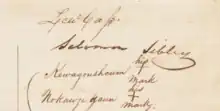 Lew Cass.
Solomon Sibley
Kewagoushcum his mark
Nokawjegaun his mark